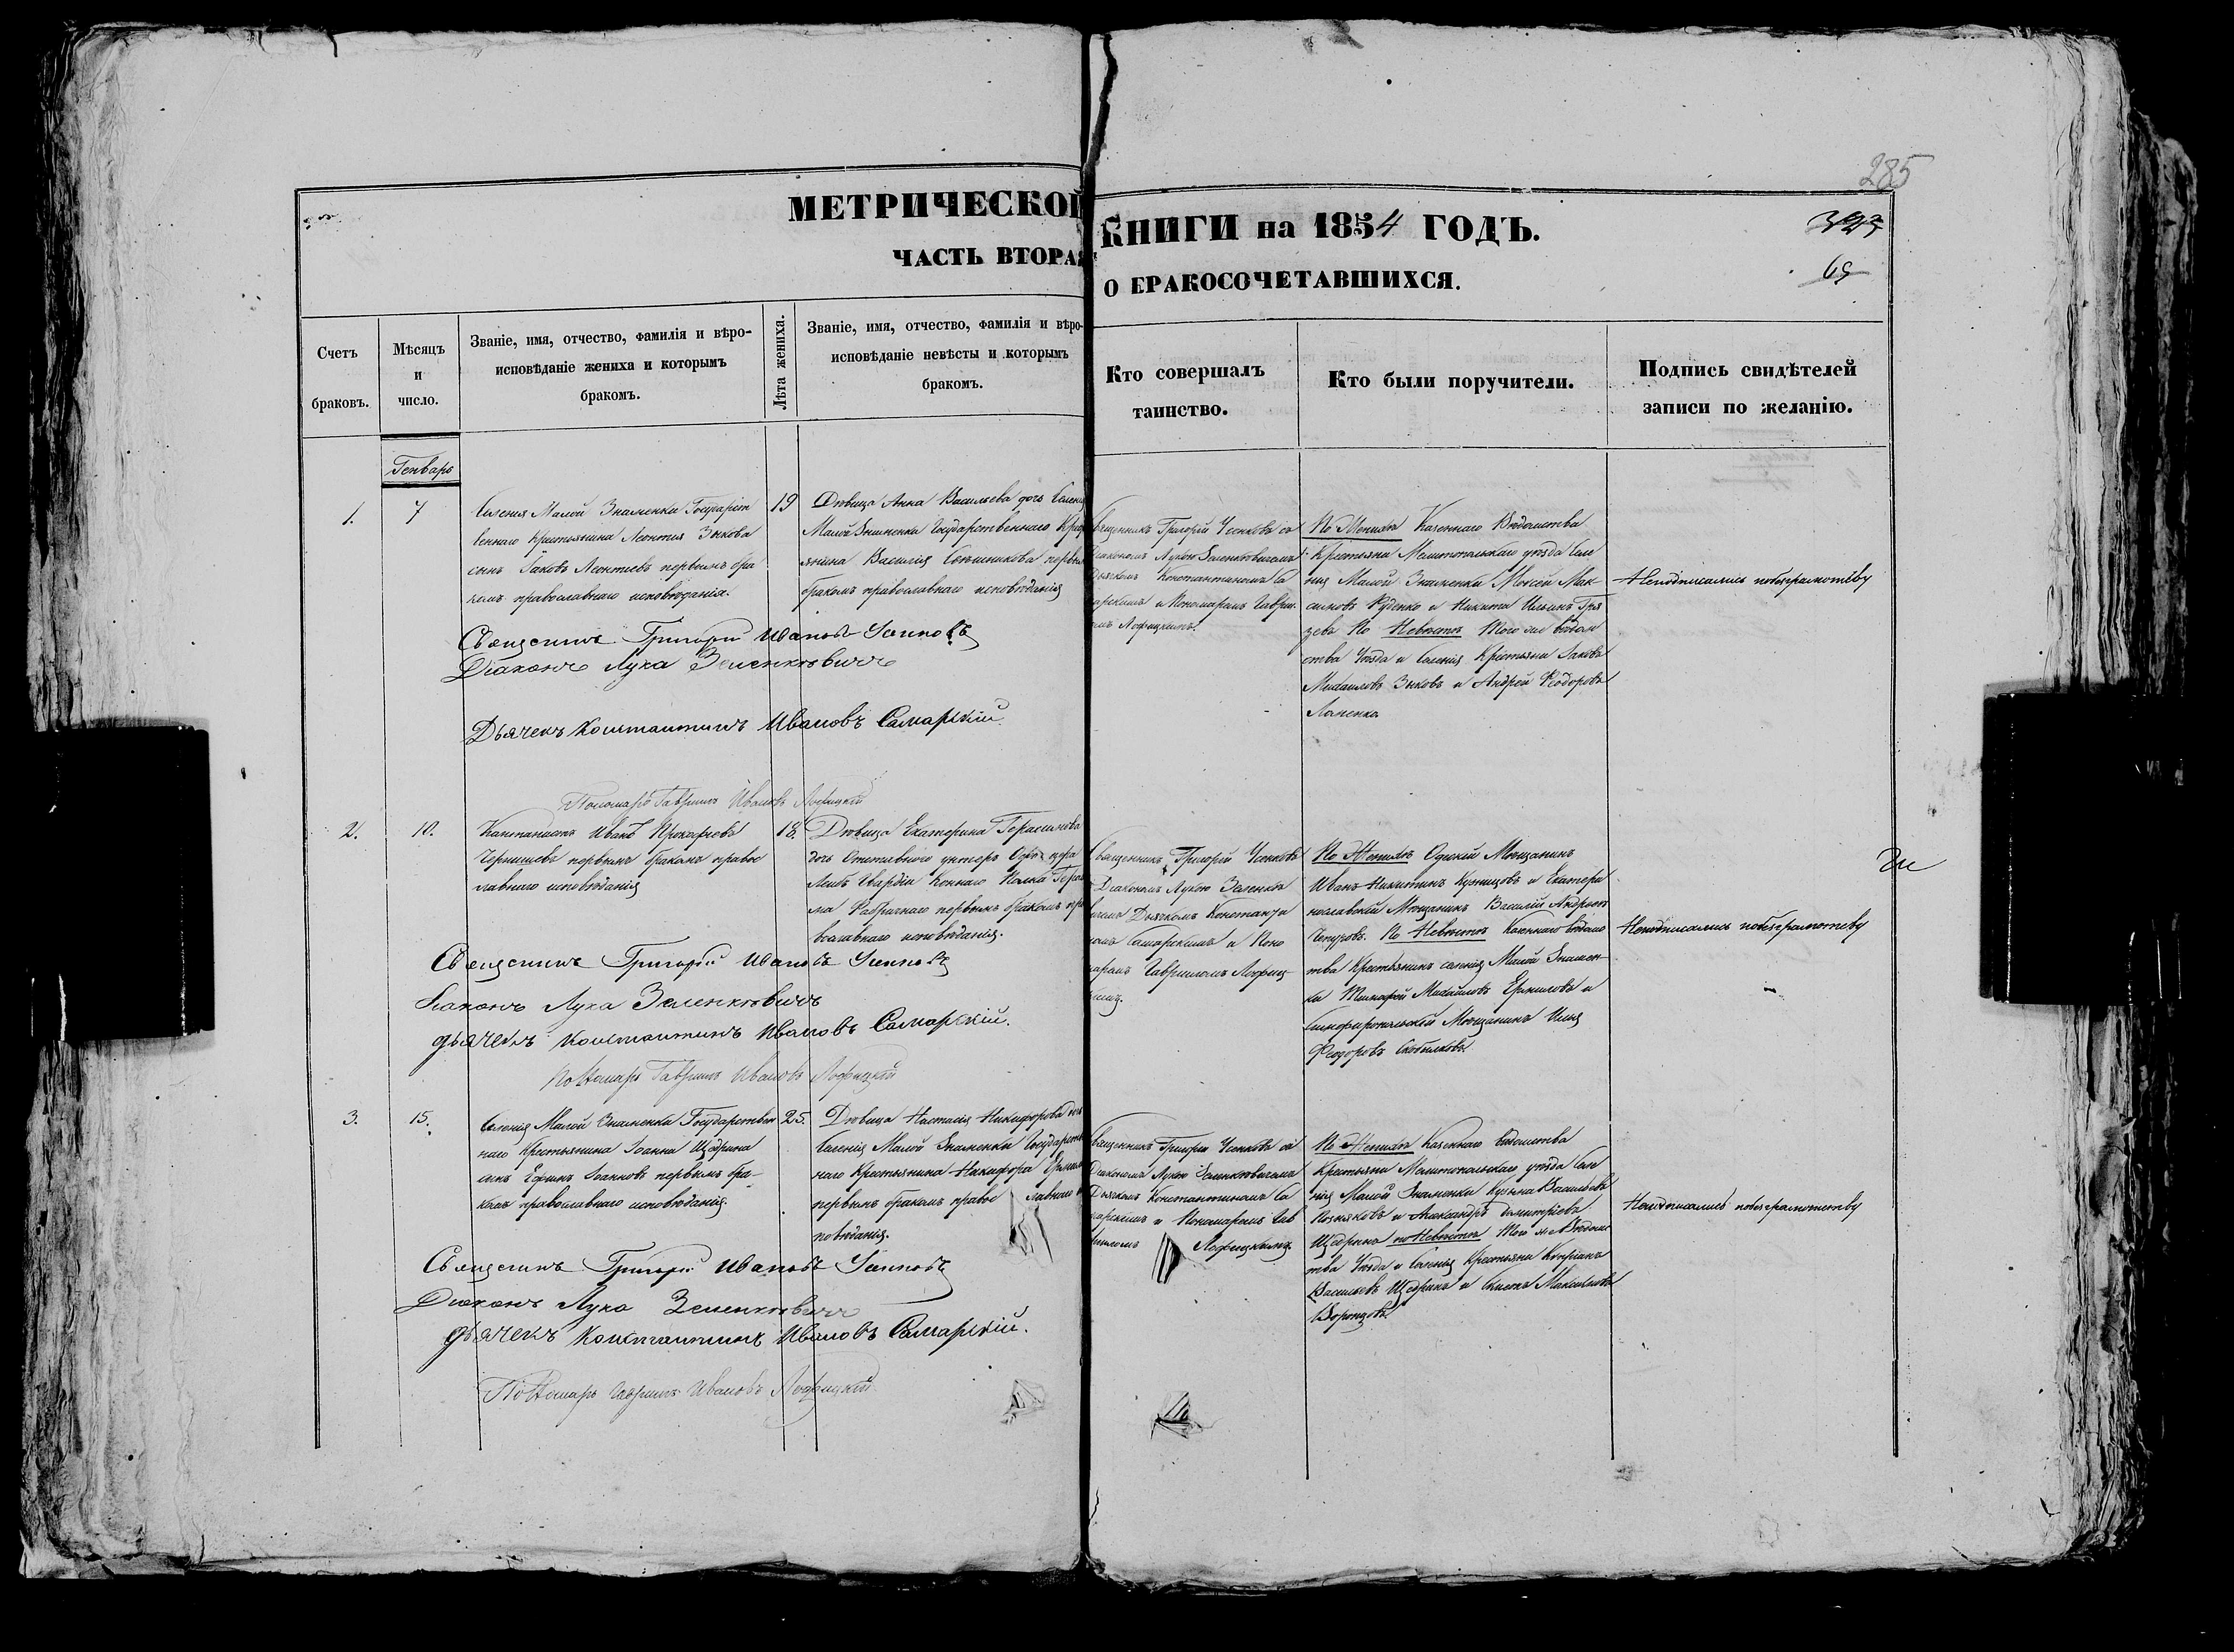 285
МЕТРИЧЕСКОЙ КНИГИ на 1854 ГОДЪ.
ЧАСТЬ ВТОРАЯ О БРАКОСОЧЕТАВШИХСЯ.
Счетъ браковъ.
Мѣсяцъ и число.
Званіе, имя, отчество, фамилія и вѣро-
исповѣданіе жениха и которымъ
бракомъ.
Лѣта жениха.
Званіе, имя, отчество, фамилія и вѣро-
исповѣданіе невѣсты и которымъ
бракомъ.
Кто совершалъ
таинство.
Кто были поручители.
Подпись свидѣтелей
записи по желанію.
Генварь
1.
7
Селенія Малой Знаменки Государст
веннаго Крестьянина Леонтія Зыкова
сынъ Іаковъ Леонтіевъ первымъ бра
комъ православнаго исповѣданія.
19
Дѣвица Анна Васильева дочь Селені
Малой Знаменки Государственнаго Крес
янина Василія первы
бракомъ православнаго исповѣданія
Священникъ Григорій Усиковъ съ
Діакономъ Лукою Зеленкевичемъ
Дьячкомъ Константиномъ Са
арскимъ и Пономаремъ Гаври
Лофицкимъ.
По Женихѣ Казеннаго Вѣдомства
Крестьяни Мелитопольскаго уѣзда Селе
нія Малой Знаменки Моисей Мак
симовъ Руденко и Никита Ильинъ Гря
зевъ По Невѣстѣ Того же вѣдом
ства Уѣзда и Селенія Крестьяни Іаковъ
Михаиловъ Зыковъ и Андрей Ѳеодоровъ
Неподписались побезграмотству
Священникъ Григорій Ивановъ Усиковъ
Діаконъ Лука Зеленкѣвичъ
Дьячекъ Константинъ Ивановъ Самарскій.
Пономарь Гавриилъ Ивановъ Лофицкій
2.
10.
Кантонистъ Иванъ Прокофіевъ
Чернышевъ первымъ бракомъ правос
лавнаго исповѣданія
18.
Дѣвица Екатерина Герасимова
дочь Отставного унтеръ Офи цера
Лейбъ Гвардіи Коннаго Полка Гера
ма Фабричнаго первымъ бракомъ пра
вославнаго исповѣданія.
Священникъ Григорій Усиковъ
Діакономъ Лукою Зеленкѣ
Дьячкомъ Константи
номъ Самарскимъ и Поно
маремъ Гавриломъ Лофиц
кимъ.
По Женихѣ Одескій Мѣщанинъ
Иванъ Никитинъ Кузнецовъ и Екатери
нославскій Мѣщанинъ Василій Андреевъ
По Невѣстѣ Казеннаго вѣдомс
тва Крестьянинъ селенія Малой Знамен
ки Тимофей Михайловъ Ермиловъ и
Симферопольскій Мѣщанинъ Илья
Ѳеодоровъ
Неподписались побезграмотству
Священникъ Григорій Ивановъ Усиковъ
Діаконъ Лука Зеленкѣвичъ
дьячекъ Константинъ Ивановъ Самарскій.
Пономарь Гавріилъ Ивановъ Лофицкій
3.
15.
Селенія Малой Знаменки Государствен
наго Крестьянина Іоанна Щедрина
сынъ Ефимъ Іоанновъ первымъ бра-
комъ православнаго исповѣданія.
25.
Дѣвица Настасія Никифорова дочь
Селенія Малой Знаменки Государств
наго Крестьянина Никифора Ермил
первымъ бракомъ правос лавнаго
повѣданія.
Священникъ Григорій Усиковъ съ
Діакономъ Лукою Зеленкѣвичемъ
Дьячкомъ Константиномъ Са
арскимъ и Пономаремъ Гав
Лофицкимъ.
По Женихѣ Казеннаго вѣдомства
Крестьяни Мелитопольскаго уѣзда Селе
нія Малой Знаменки Кузьма Васильевъ
Позняковъ и Александръ Димитріевъ
Щедринъ по Невѣстѣ Того же Вѣдомс
тва Уѣзда и Селенія Крестьяни Кипріанъ
Васильевъ Щедринъ и Максимовъ
Воронцовъ
Неподписались побезграмотству
Священникъ Григорій Ивановъ Усиковъ
Діаконъ Лука Зеленкѣвичъ
дьячекъ Константинъ Ивановъ Самарскій.
Пономарь Гавриилъ Ивановъ Лофицкій